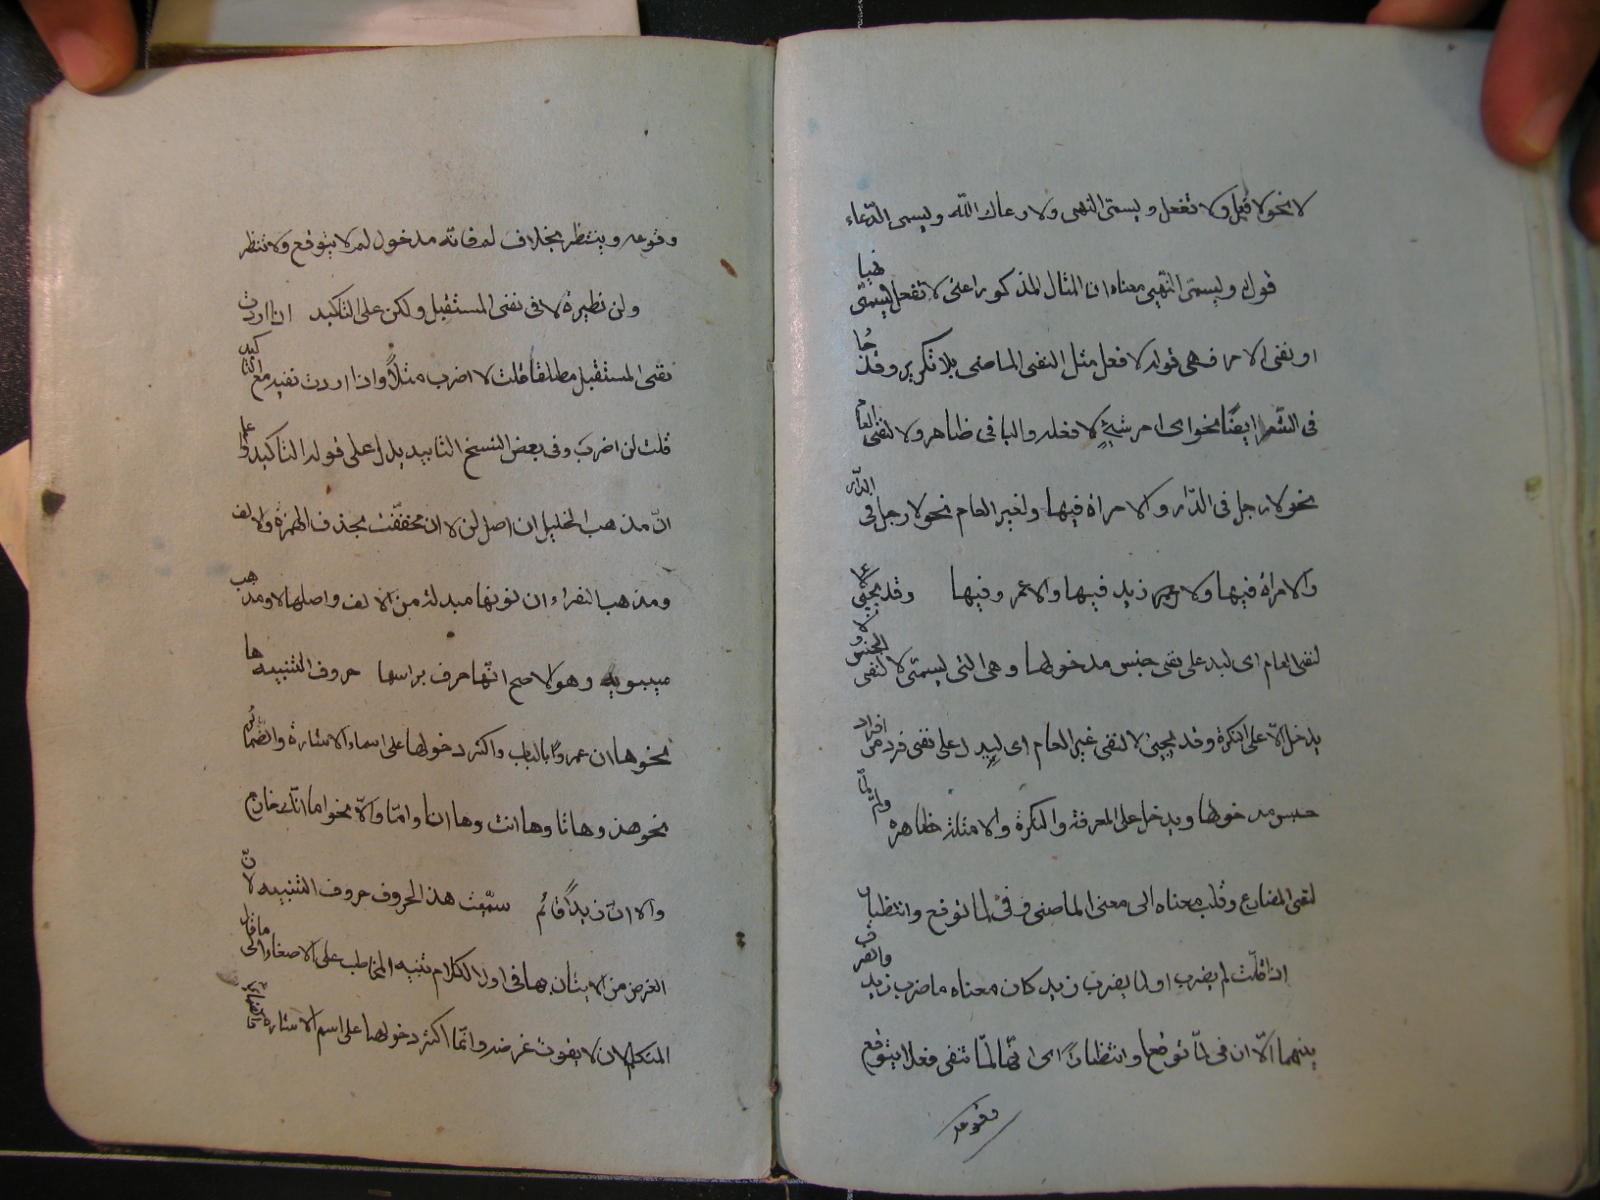 لا نحو لا تفعل ولا تفعل ويسمى النهى ولا رعاك الله ويسمى الدّعاء
قوله ويسمّى النّهى معناه ان المثال المذكور اعنى لا تفعل يسمّى نهيا
او نفى الامر فهى قوله لا فعل مثل النفى الماضى بلا تكرير وقد جا
فى الشّعر ايضًا نحو اى امر شيئٍ لا فعله والباقى ظاهر ولا لنفى العام
نحو لا رجل فى الدّار ولا امراة فيها ولغير العام نحو لا رجل فى الدّار
ولا امراة فيها ولا زيد فيها ولا عمرو فيها وقد يجئ لا
لنفى العام اى ليدل على نفى جنس مدخولها وهى التى يسمّى لا لنفى الجنس ولا
يدخل الّا على النكرة وقد يجيئ لا لنفى غير العام اى ليدل على نفى فرد من افراد
جنس مدخولها ويدخل على المعرفة والنكرة والامثلة ظاهره ولم ولمّا
لنفى المضارع وقلب معناه الى معنى الماضى وفى لما توقع وانتظار
اذا قلت لم يضرب او لما يضرب زيد كان معناه ما ضرب زيد والفرق
بينهما الّا ان فى لمّا توقعا وانتظارًا اى انّها لمّا تنفى فعلا يتوقع
وقوعه
وقوعه وينتظر بخلاف لم فانّه مدخول لم لا يتوقع ولا ينتظر
ولن نظيرة لا فى نفى المستقبل ولكن على التاكيد ان اردت
نفى المستقبل مطلقا قلت لا اضرب مثلاً واذا اردت نفيه مع التاكيد
قلت لن اضرب وفى بعض النسخ التابيد بدل على قوله التاكيد
انّ مذهب الخليل ان اصل لن لا ان مخفّفت بحذف الهمزة والالف
ومذهب الفراء ان نونها مبدلة من الالف واصلها لا ومذهب
سيبويه وهو الاصح انّها حرف براسها حروف التنبيه ها
نحو ها ان عمروًا بالباب واكثر دخولها على اسماء الاشارة والضمائر
نحو هذا وهاتا وها انت وها انا واما والا نحو اما انّك خارج
والا انّ زيدًا قائم سمّيت هذه الحروف حروف التنبيه لانّ
الغرض من الاتيان بها فى اول الكلام تنبيه المخاطب على الاصغاء الى ما قال
المتكلم لان لا يفوت غرضه وانّما اكثر دخولها على اسم الاشاره